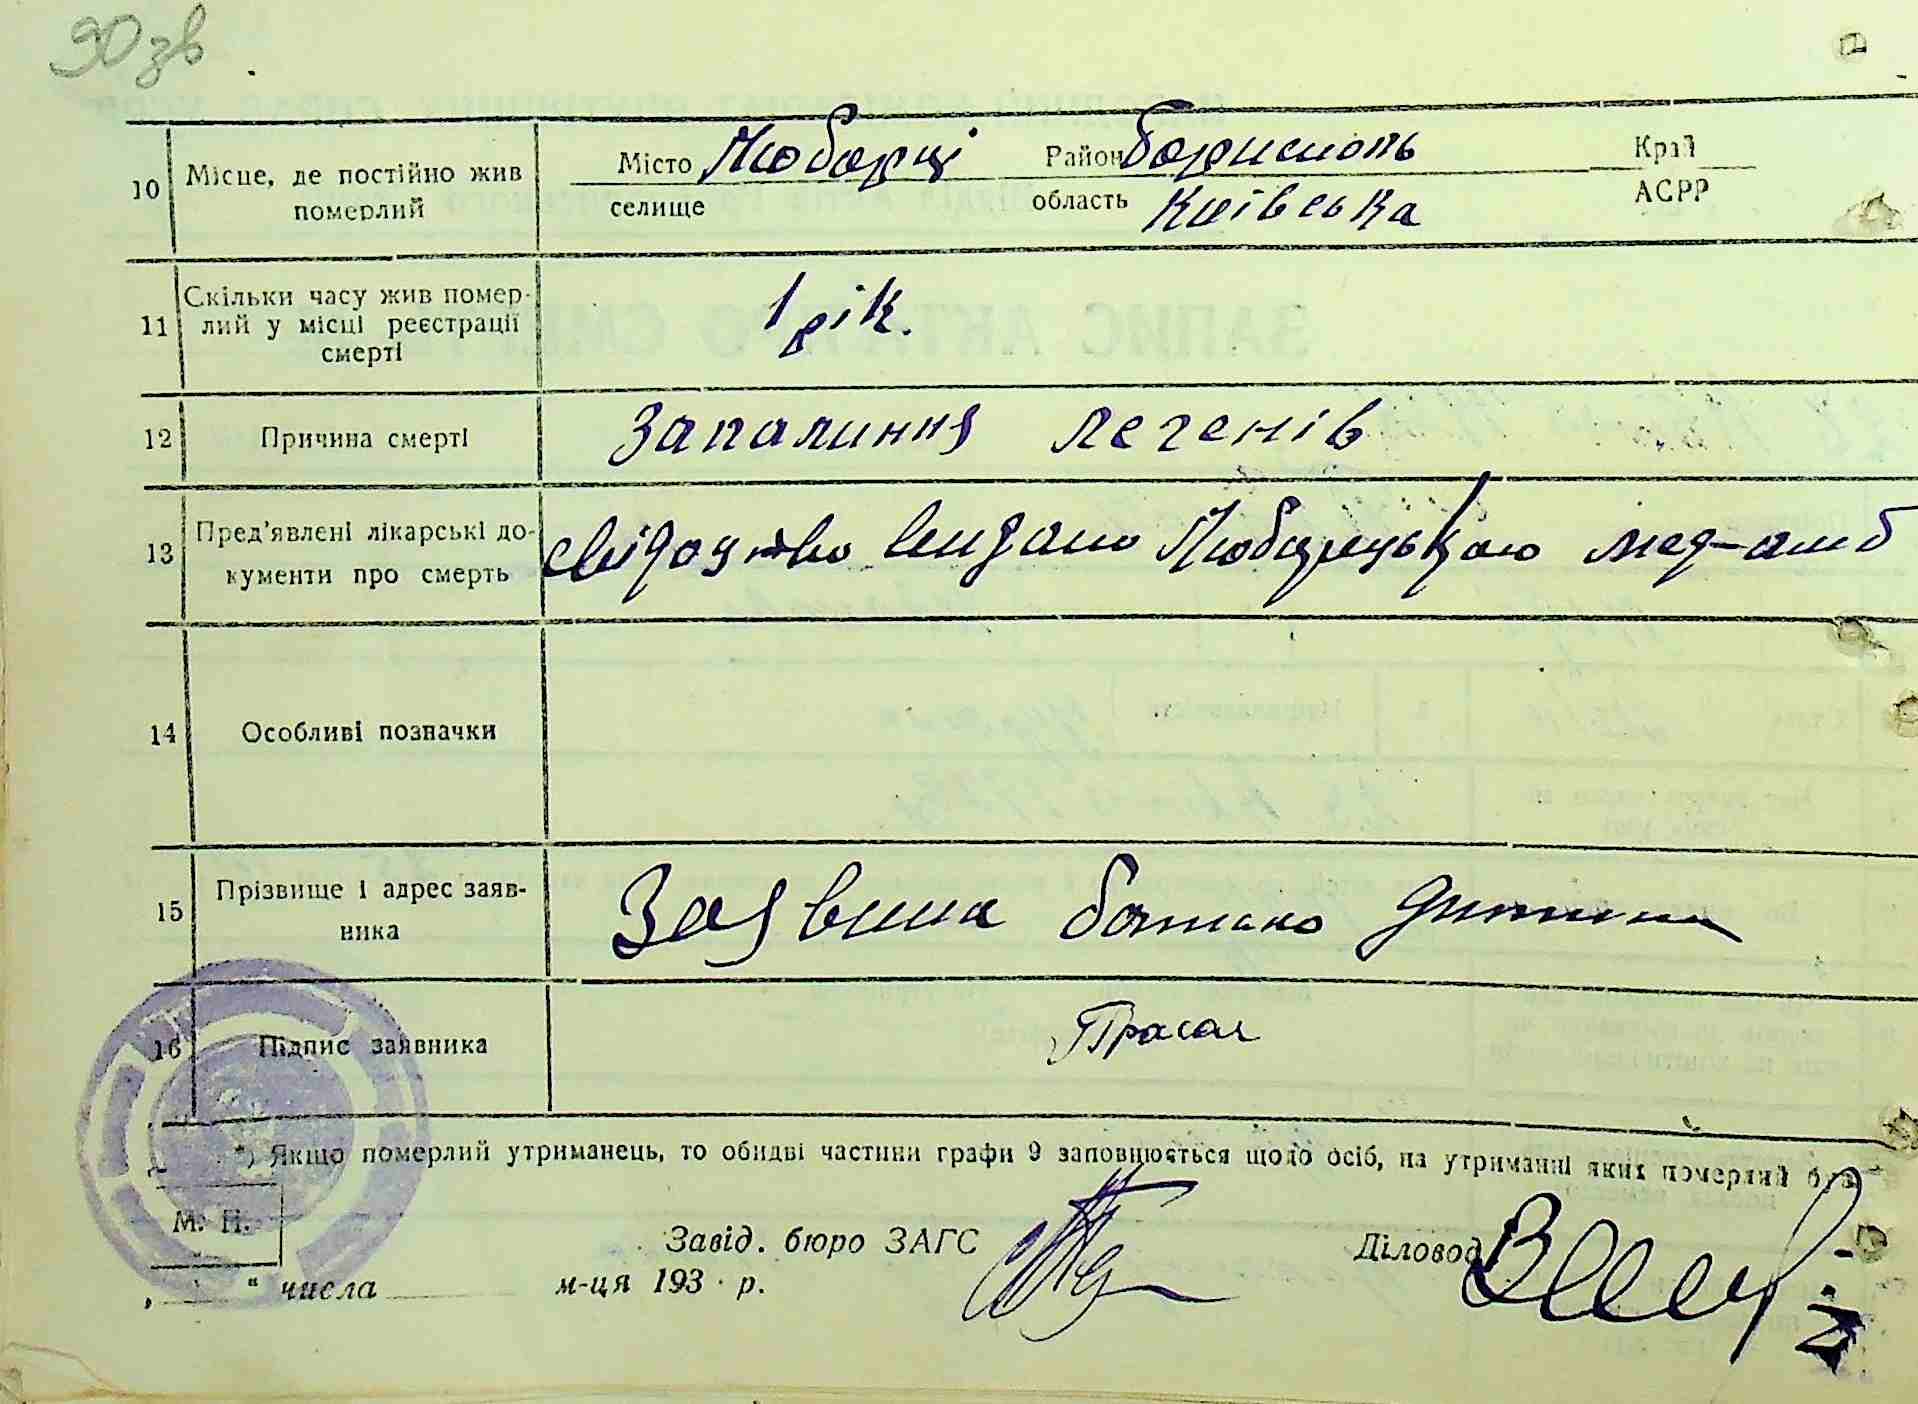 90 зв
10 Місце, де постійно жив Місто Любарці Район Борисполь Край
померлий селище область Київська АСРР
11 Скільки часу жив помер-
лий у місці реєстрації 1 рік.
смерті
12 Причина смерті Запалиння легенів
13 Пред'явлені лікарські до- свідоцтво видано Любарецькою мед-амб
кументи про смерть
14 Особливі позначки
15 Прізвище і адрес заяв- Заявила батько дитини
ника
16 Підпис заявника Прасол
*) Якщо померлий утриманець, то обидві частини графи 9 заповнюється щодо осіб, на утриманні яких померлий був.
М. П.
Завід. бюро ЗАГС Діловод
„ “ числа м-ця 193 р.